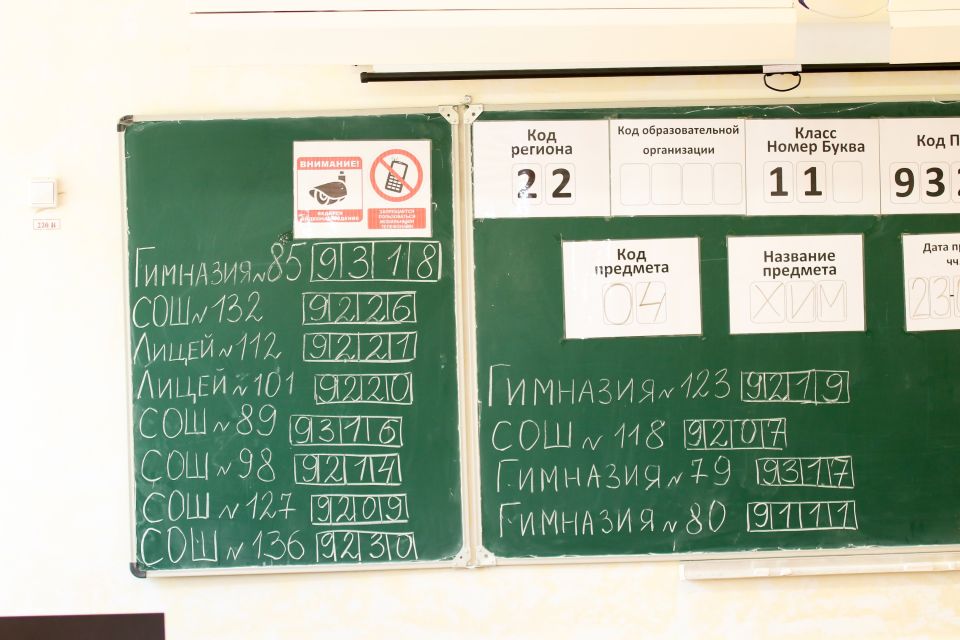 ВНИМАНИЕ!
ВЕДЕТСЯ
ВИДЕОНАБЛЮДЕНИЕ
ЗАПРЕЩАЕТСЯ
ПОЛЬЗОВАТЬСЯ
МОБИЛЬНЫМИ
ТЕЛЕФОНАМИ
220 В
ГИМНАЗИЯ N 85 9318
СОШ N 132 9226
ЛИЦЕЙ N 112 9221
ЛИЦЕЙ N 101 9220
СОШ N 89 9316
СОШ N 98 9214
СОШ N 127 9209
СОШ N 136 9230
Код
региона
22
Код образовательной
организации
Класс
Номер Буква
11
Код П
93
Код
предмета
04
Название
предмета
ХИМ
Дата пр
чч.
23-
ГИМНАЗИЯ N 123 9219
СОШ N 118 9207
ГИМНАЗИЯ N 79 9317
ГИМНАЗИЯ N 80 9111